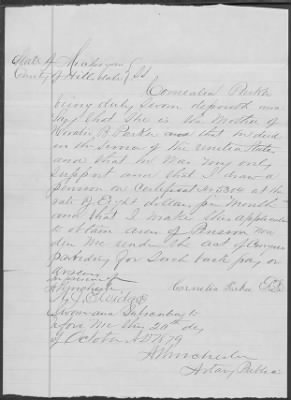 State of Michigan } SS
County of Hillsdale }
Cornelia Parker
being duly sworn deposeth and
says that she is the Mother of
B Parker and that he died
in the Service of the United States
and that he was my only
support and that I draw a
pension on Certificate No 5304 at the
rate of Eight dollars per month
and that I make this application
to obtain arears of Pension
under the act of Congress
providing for such back pay or
arrears
in presence of
A Winchester Cornelia Parker
Sworn and Subscribed to
before me this 20th day
of October AD 1879
A Winchester
Notary Public